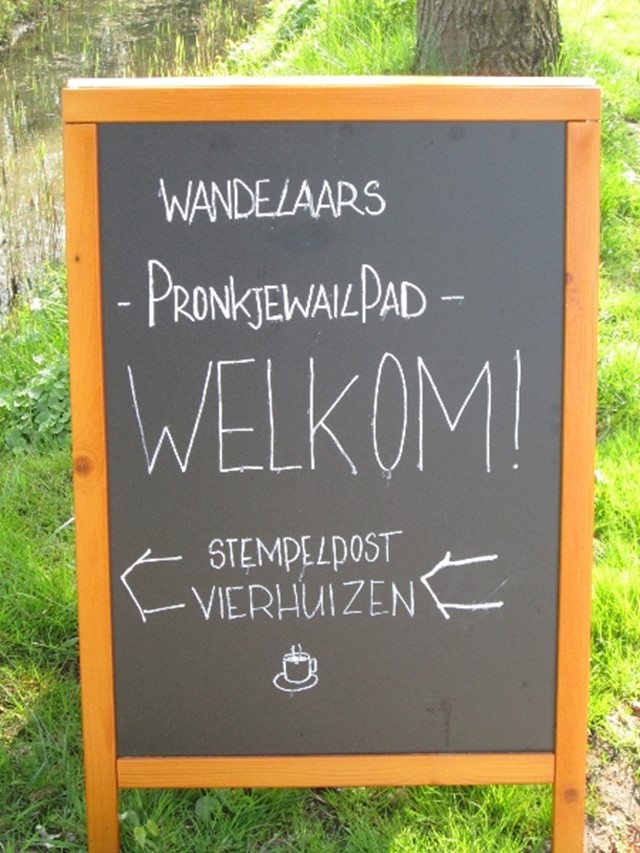 WANDELAARS
- PRONKJEWAILPAD -
WELKOM!
STEMPELPOST
VIERHUIZEN